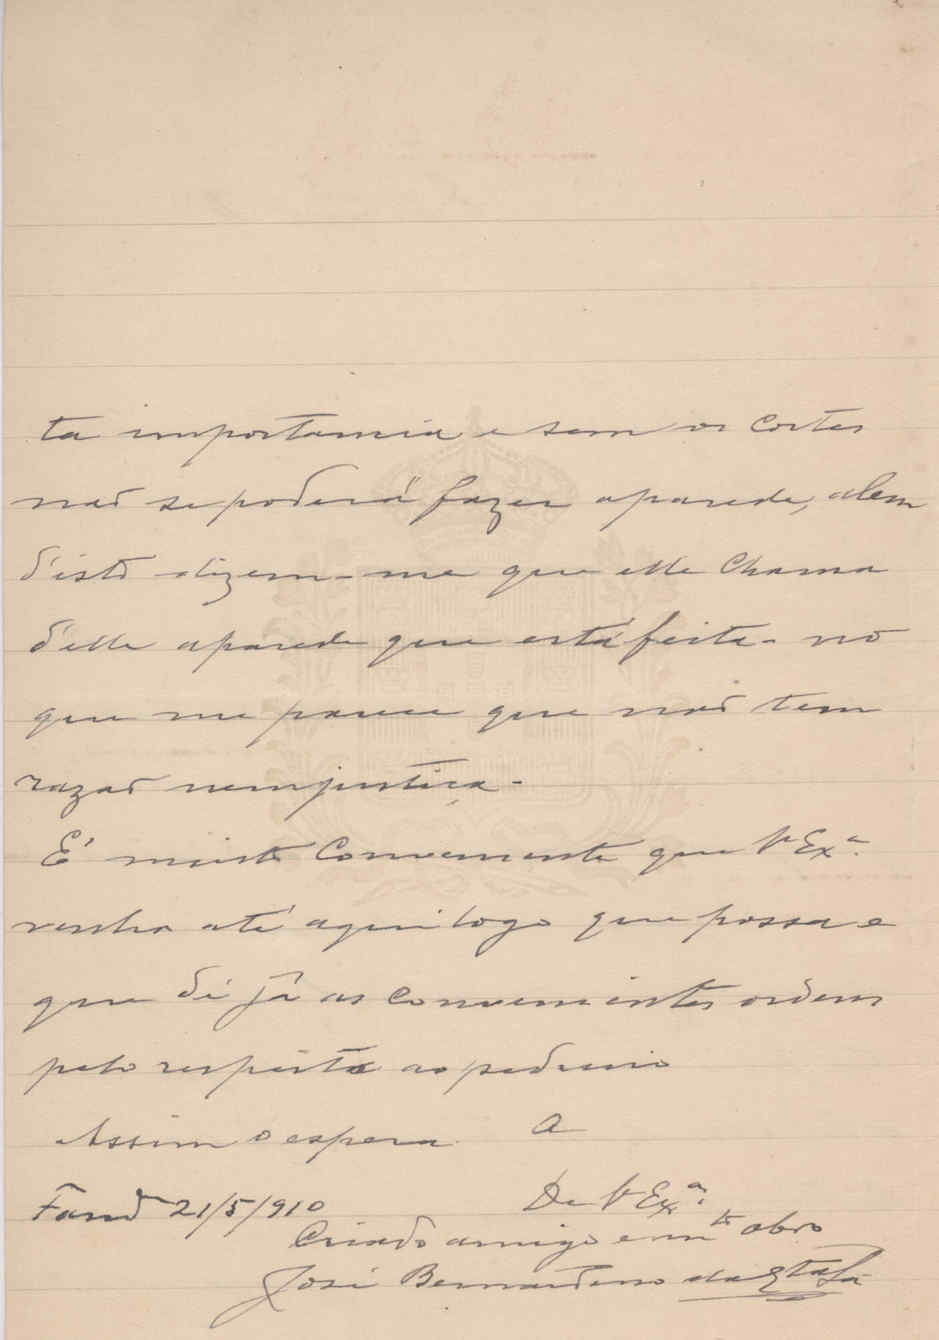 ta importancia e sem os cortes
não se poderá fazer aparede, alem
d'isto dizem-me que elle chama
d'elle aparede que está feita - no
que me parece que não tem
razaõ nem justiça -
É muito conveniente que V Exª.
venha até aqui logo que possa e
que dê já as convenientes ordens
pelo respeito ao pedreiro
Assim o espera A
De V Exª.
21/5/910
Criado amigo e mto obro
José Bernardino da